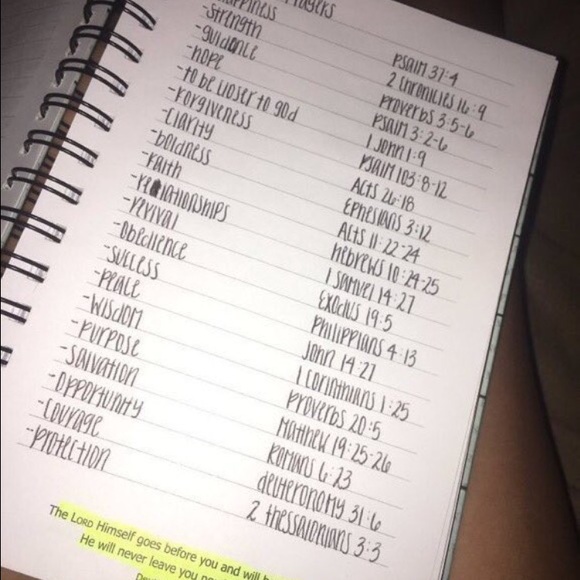 -happiness psalm 37:4
-strength 2 chronicles 16:9
-guidance proverbs 3:5-6
-hope psalm 3:2-6
-to be closer to god 1 john 1:9
-forgiveness psalm 103:8-12
-clarity Acts 26:18
-boldness Ephesians 3:12
-faith Acts 11:22-24
-relationships hebrews 10:24-25
-revival 1 samuel 14:27
-obedience Exodus 19:5
-success philippians 4:13
-peace john 14:27
-wisdom 1 corinthians 1:25
-purpose proverbs 20:5
-salvation matthew 19:25-26
-opportunity romans 6:23
-courage deuteronomy 31:6
-protection 2 thessalonians 3:3
The LORD Himself goes before you and will
He will never leave you